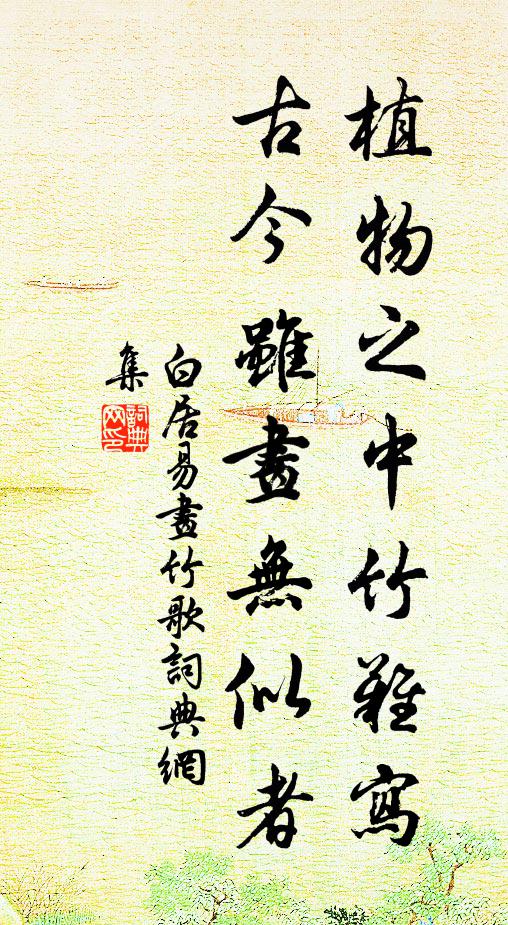 植物之中竹難寫
古今雖畫無似者
白居易畫竹歌詞典網
集
詞典
网印